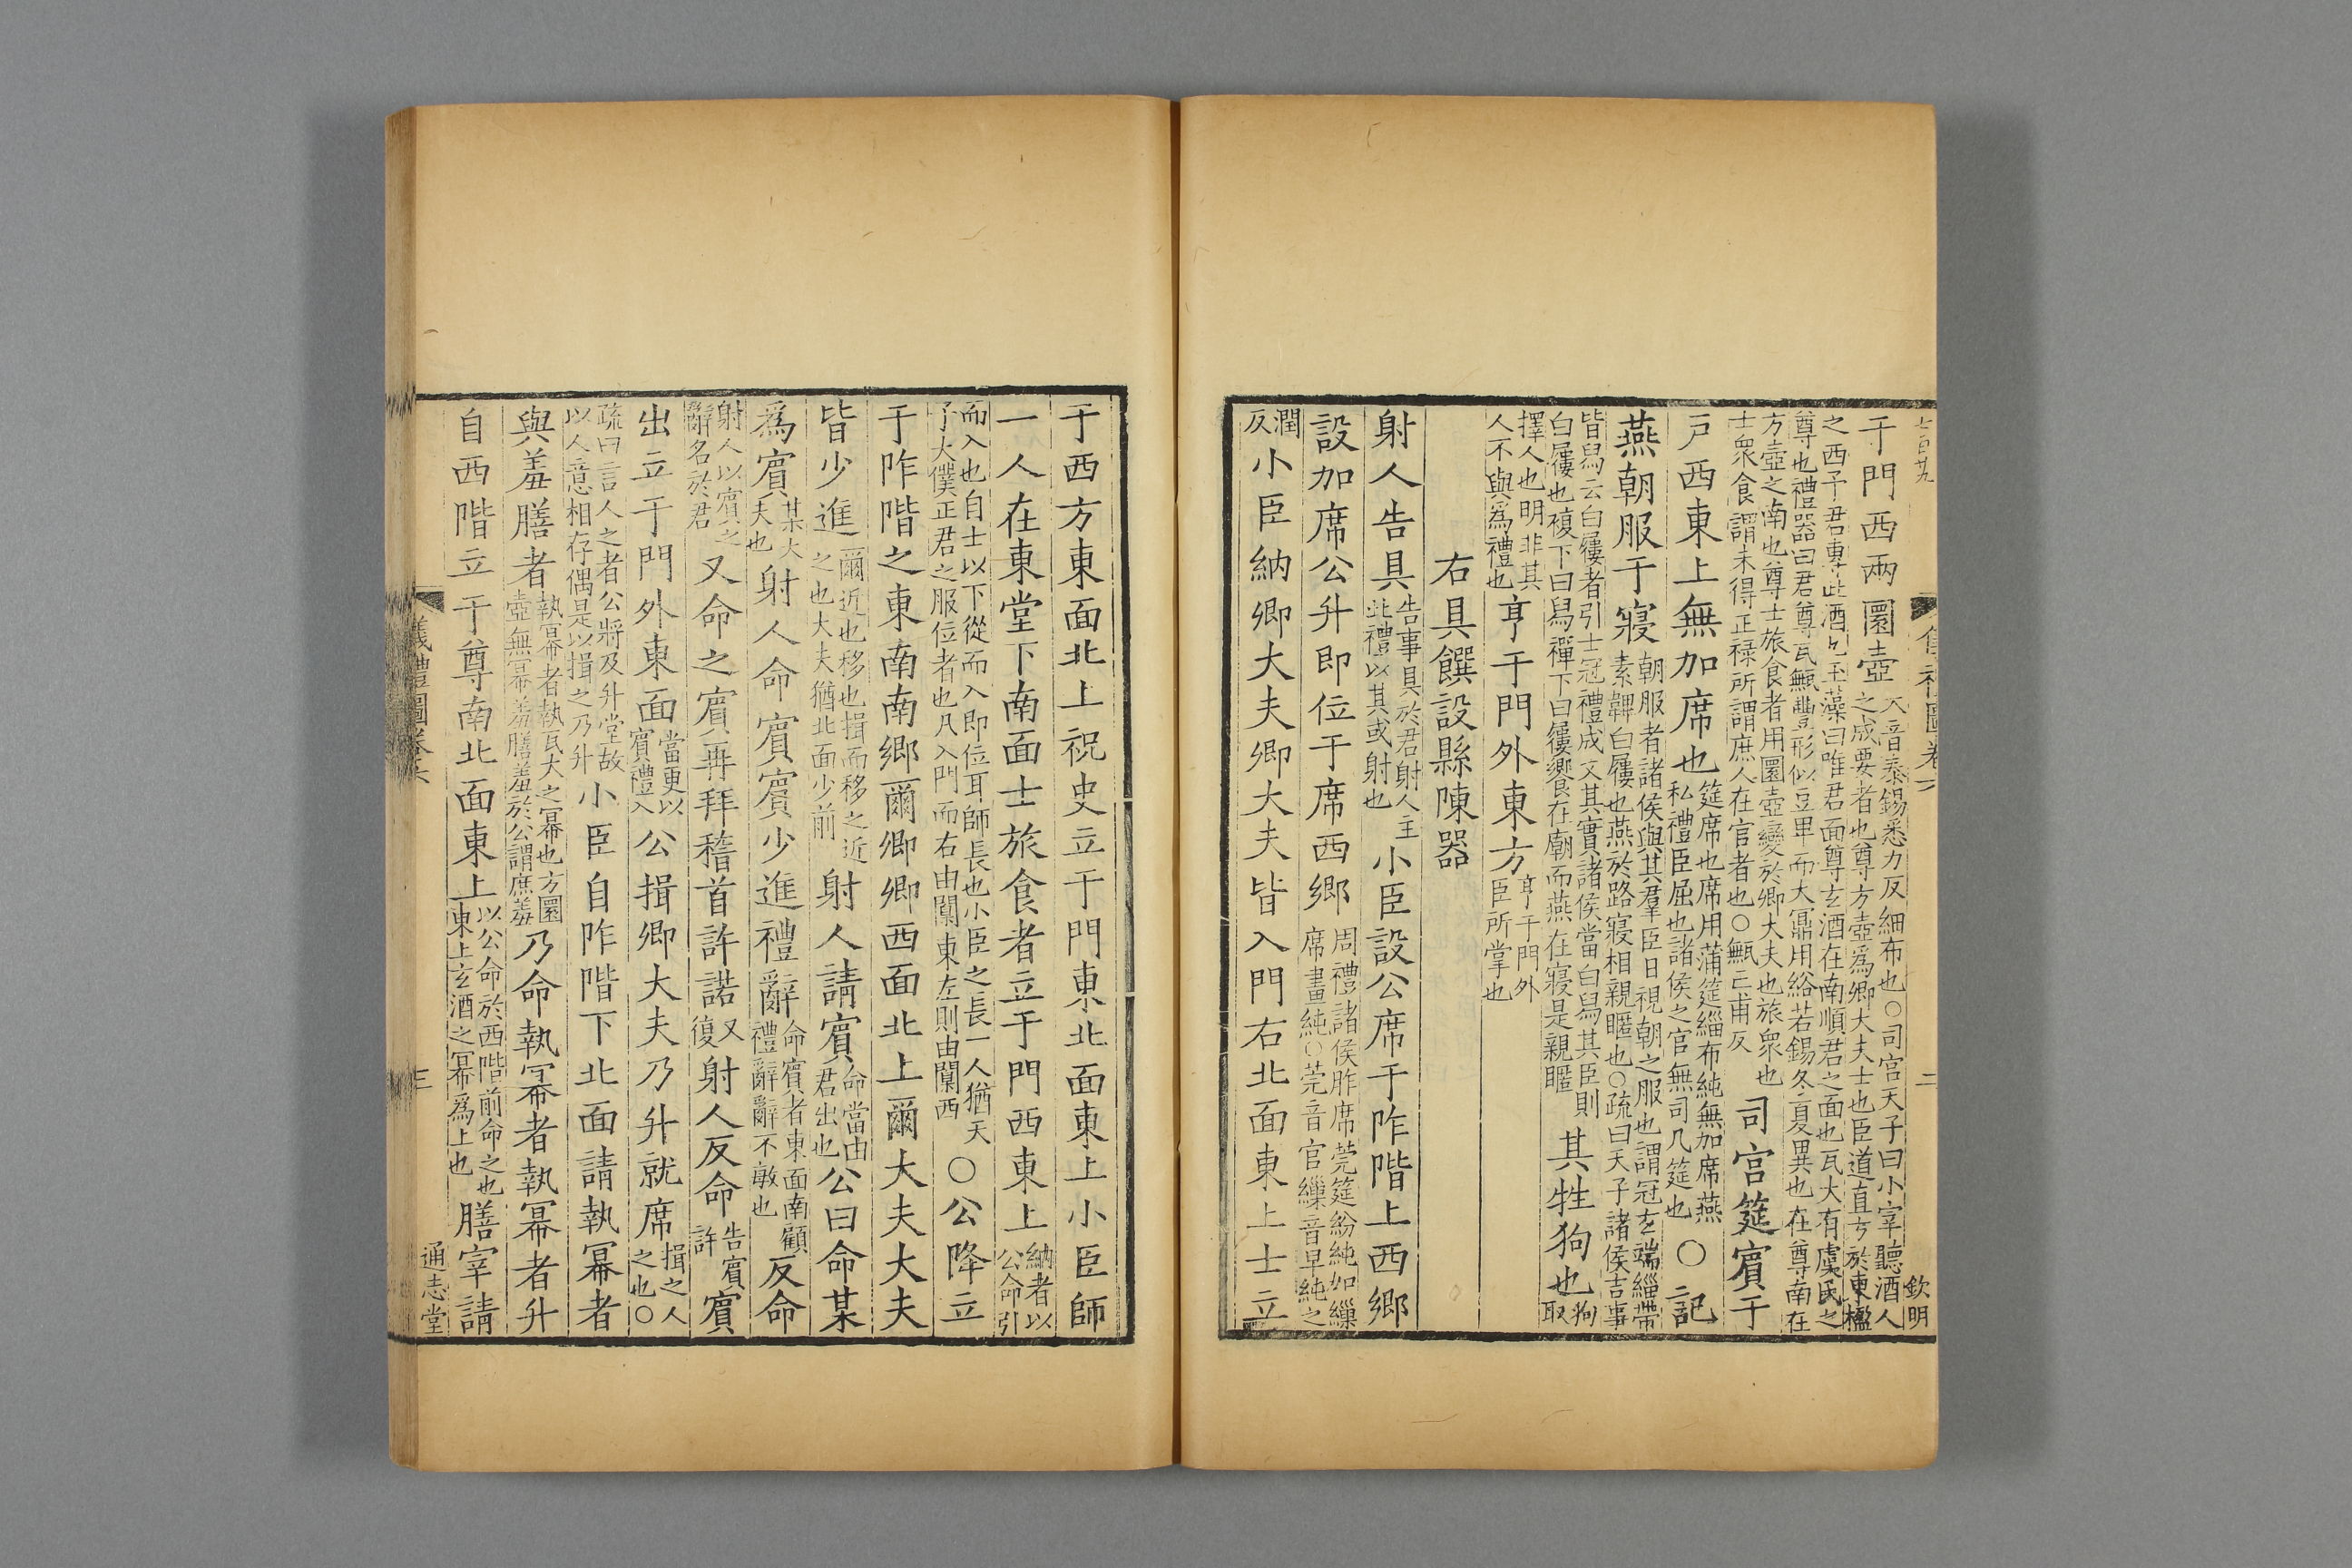 七百廿九
儀禮圖卷六 二
欽明
于門西兩圜壺大音泰錫悉力反細布也○司宮天子曰小宰聽酒人之成要者也尊方壺為卿大夫士也臣道直方於東楹
之西予君專此酒也玉藻曰唯君面尊玄酒在南順君之面也瓦大有虞氏之尊也禮器曰君尊瓦甒豐形似豆卑而大冪用綌若錫冬夏異也在尊南在
方壺之南也尊士旅食者用圜壺變於卿大夫也旅衆也士衆食謂未得正禄所謂庶人在官者也○甒亡甫反司宮筵賓于
戶西東上無加席也筵席也席用蒲筵緇布純無加席燕私禮臣屈也諸侯之官無司几筵也○記
燕朝服于寢朝服者諸侯與其羣臣日視朝之服也謂冠玄端緇帶素韠白屨也燕於路寢相親暱也○疏曰天子諸侯吉事
皆舄云白屨者引士冠禮成文其實諸侯當白舄其臣則白屨也複下曰舄襌下曰屨饗在廟而燕在寢是親暱其牲狗也狗取
擇人也明非其人不與為禮也亨于門外東方亨于門外臣所掌也
右具饌設縣陳器
射人告具告事具於君射人主此禮以其或射也小臣設公席于阼階上西鄉
設加席公升即位于席西鄉周禮諸侯胙席莞筵紛純加繅席畫純○莞音官繅音早純之
潤反小臣納卿大夫卿大夫皆入門右北面東上士立
于西方東面北上祝史立于門東北面東上小臣師
一人在東堂下南面士旅食者立于門西東上納者以公命引
而入也自士以下從而入即位耳師長也小臣之長一人猶天子大僕正君之服位者也凡入門而右由闑東左則由闑西○公降立
于阼階之東南南鄉爾卿卿西面北上爾大夫大夫
皆少進爾近也移也揖而移之近之也大夫猶北面少前射人請賓命當由君出也公曰命某
為賓某大夫也射人命賓賓少進禮辭命賓者東面南顧禮辭辭不敏也反命
射人以賓之辭名於君又命之賓再拜稽首許諾又復射人反命告賓許賓
出立于門外東面當更以賓禮入公揖卿大夫乃升就席揖之人之也○
疏曰言人之者公將及升堂故以人意相存偶是以揖之乃升小臣自阼階下北面請執冪者
與羞膳者執冪者執瓦大之冪也方圜壺無冪羞膳羞於公謂庶羞乃命執冪者執冪者升
自西階立于尊南北面東上以公命於西階前命之也東上玄酒之冪為上也膳宰請
儀禮圖卷六 三
通志堂